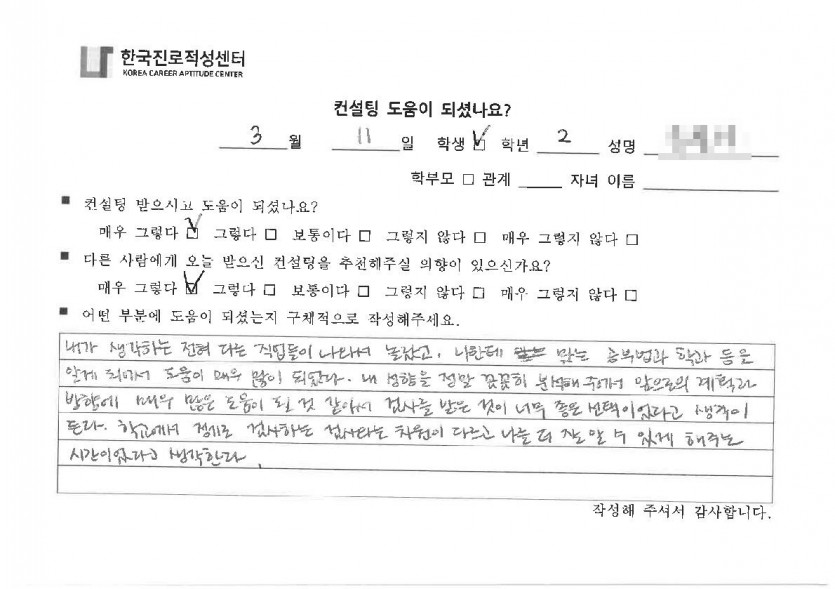 한국진로적성센터
KOREA CAREER APTITUDE CENTER
컨설팅 도움이 되셨나요?
3 월 11 일 학생 ☑ 학년 2 성명
학부모 □ 관계 자녀 이름
■ 컨설팅 받으시고 도움이 되셨나요?
매우 그렇다 ☑ 그렇다 □ 보통이다 □ 그렇지 않다 □ 매우 그렇지 않다 □
■ 다른 사람에게 오늘 받으신 컨설팅을 추천해주실 의향이 있으신가요?
매우 그렇다 ☑ 그렇다 □ 보통이다 □ 그렇지 않다 □ 매우 그렇지 않다 □
■ 어떤 부분에 도움이 되셨는지 구체적으로 작성해주세요.
내가 생각하는 전혀 다른 직업들이 나와서 놀랐고, 나한테 맞는 공부법과 학과 등을
알게 되어서 도움이 매우 많이 되었다. 내 성향을 정말 꼿꼿히 분석해 주셔서 앞으로의 계획과
방향에 매우 많은 도움이 될 것 같아서 검사를 받은 것이 너무 좋은 선택이었다고 생각이
든다. 학교에서 정기로 검사하는 검사와는 차원이 다르고 나를 더 잘 알 수 있게 해주는
시간이었다고 생각한다.
작성해 주셔서 감사합니다.